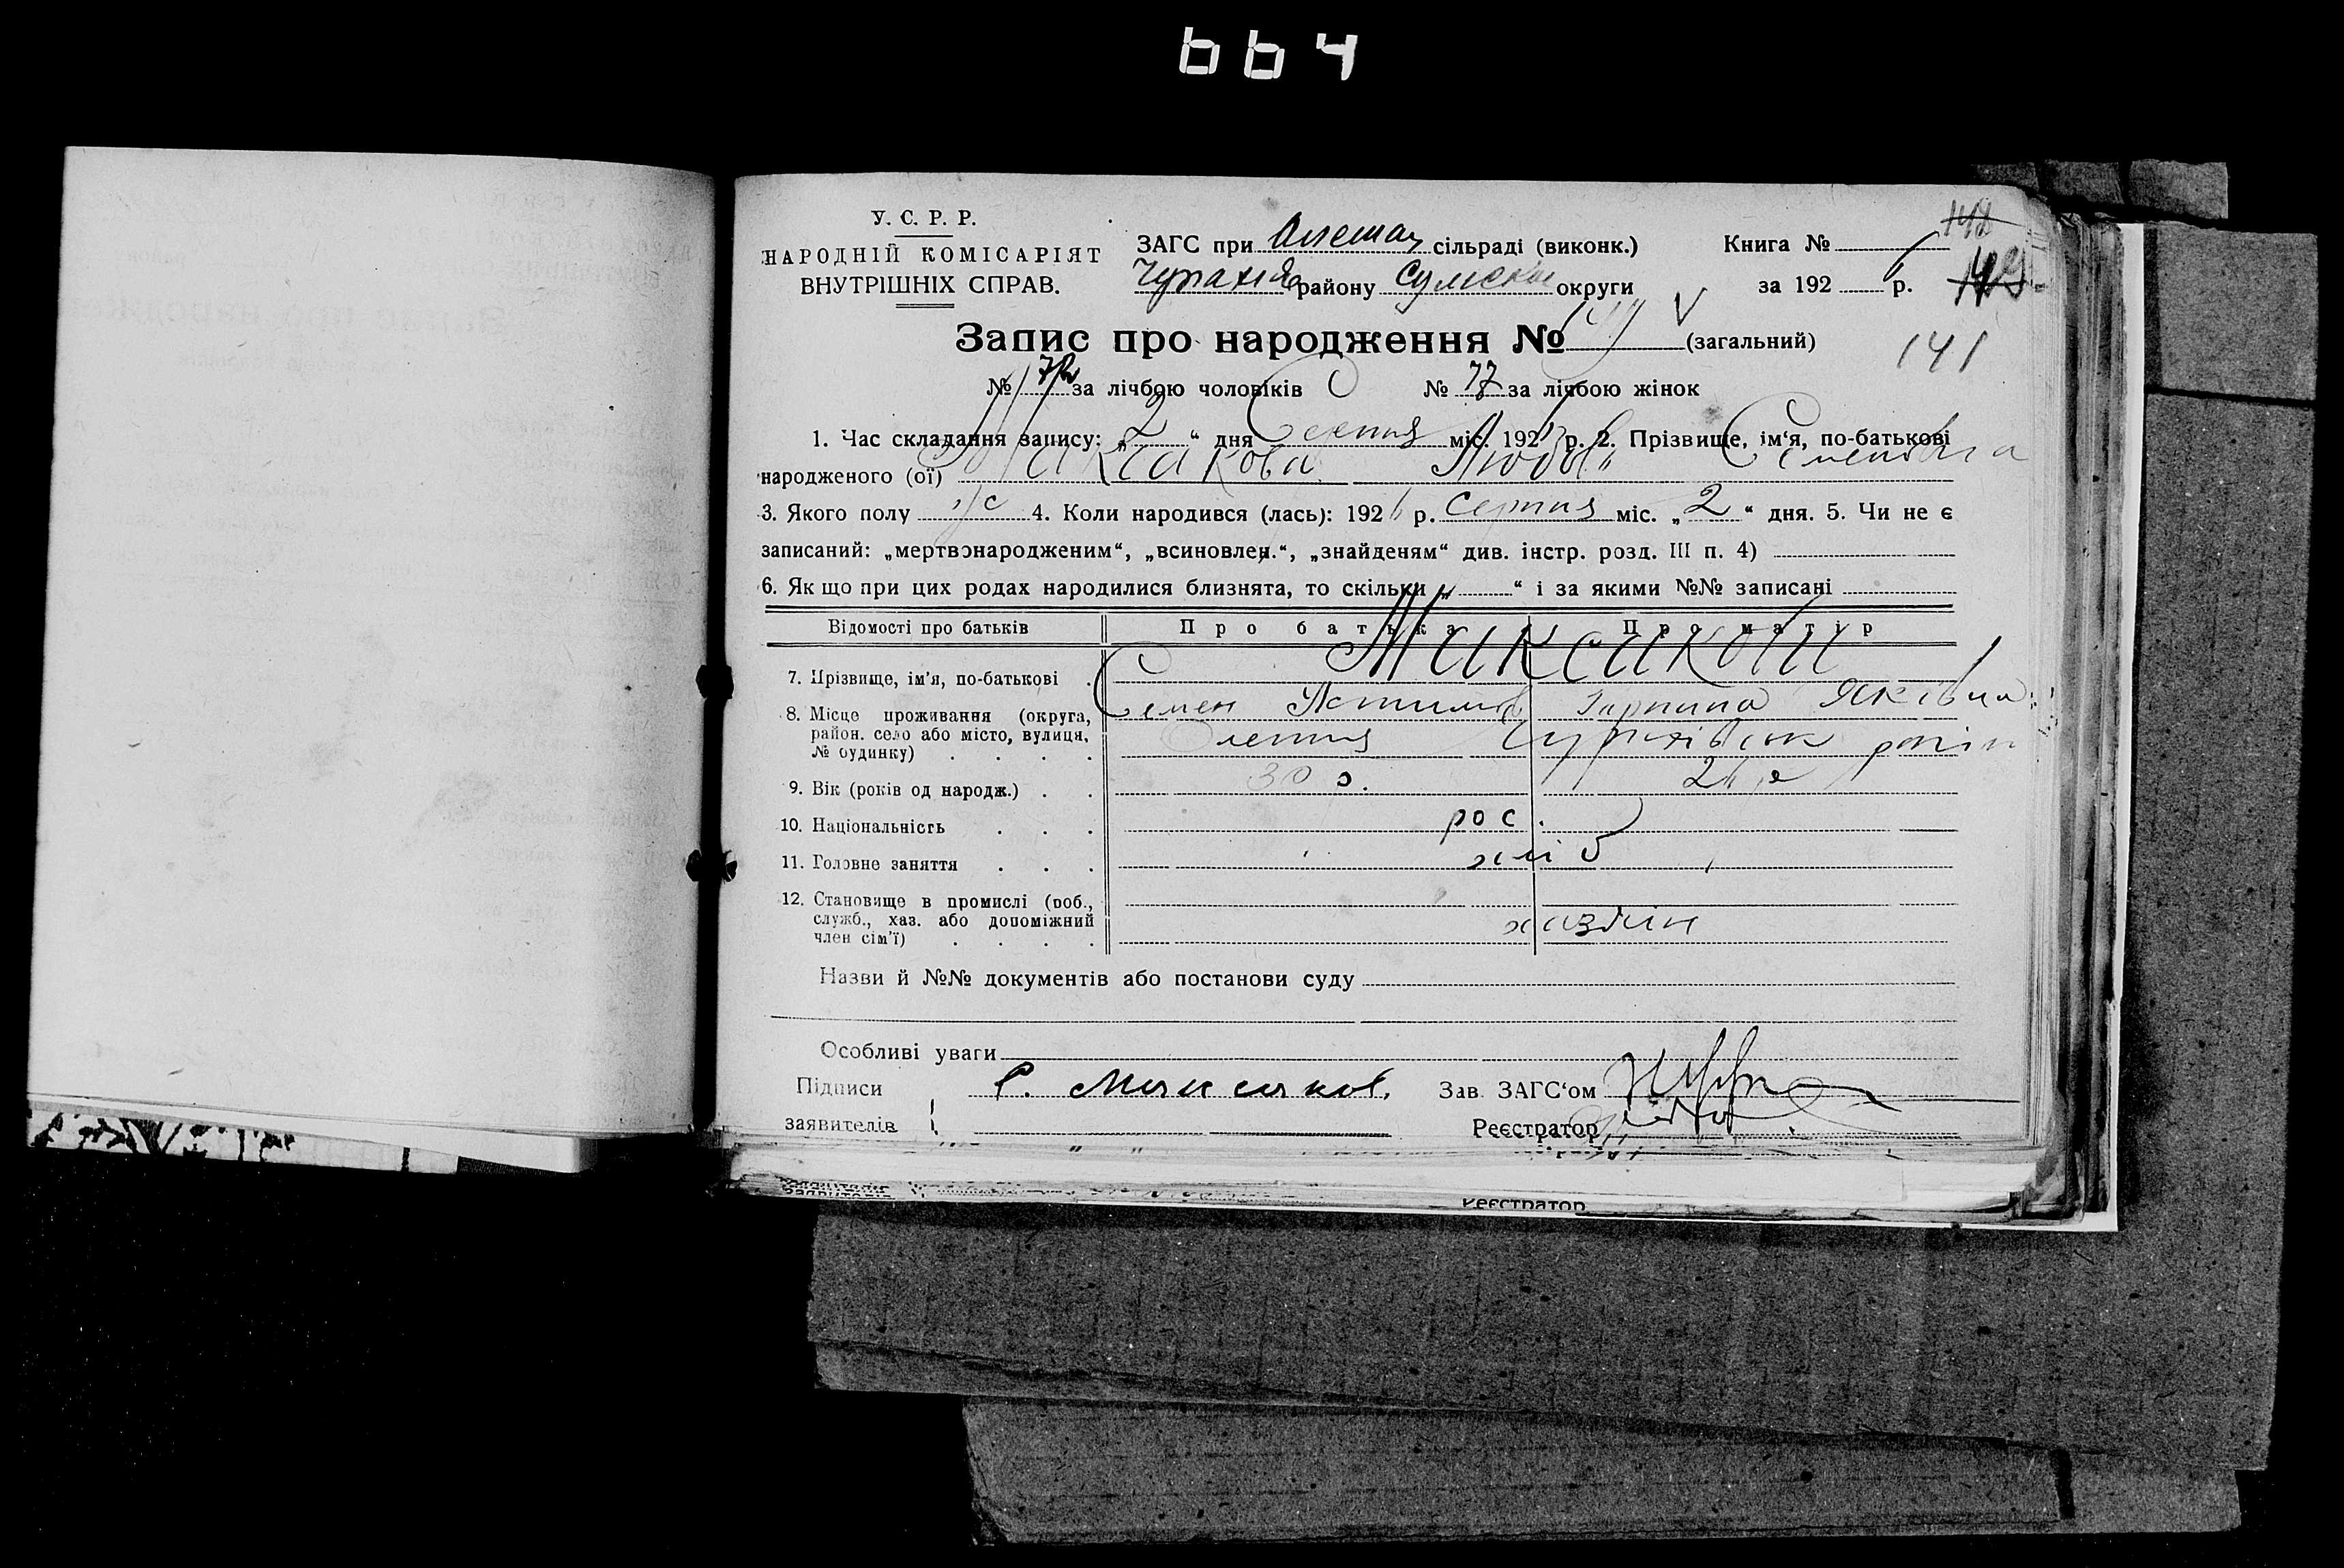 664
У. С. Р. Р.
НАРОДНІЙ КОМІСАРІЯТ
ВНУТРІШНІХ СПРАВ.
ЗАГС при Олешан сільраді (виконк.)
району Сумской округи
Книга №
за 1926 р.
148
149
141
Запис про народження № (загальний)
№ 72 за лічбою чоловіків № 77 за лічбою жінок
1. Час складання запису: „ 2 “ дня Серпня міс. 192 р. 2. Прізвище, ім‘я, по-батькові
народженого (ої) Максакова Любов Семеновна
3. Якого полу ж 4. Коли народився (лась): 1926 р. серпня міс. „ 2 “ дня. 5. Чи не є
записаний: „мертвонародженим“, „всиновлен.“, „знайденям“ див. інстр. розд. III п. 4)
6. Як що при цих родах народилися близнята, то скільки „ “ і за якими №№ записані
Відомості про батьків Про батька Про матір
Максакови
7. Прізвище, ім’я, по-батькові
Семен Гарпина Яківна
8. Місце проживання (округа,
район. село або місто, вулиця,
№ будинку)
9. Вік (років од народж.) 30 р. 26 р
10. Національність рос.
11. Головне заняття хліб
12. Становище в промислі (роб.,
служб., хаз. або допоміжний
член сім’ї)
хазяїн
Назви й №№ документів або постанови суду
Особливі уваги
Підписи С. Максаков. Зав. ЗАГС‘ом
заявителів Реєстратор
Реєстратор